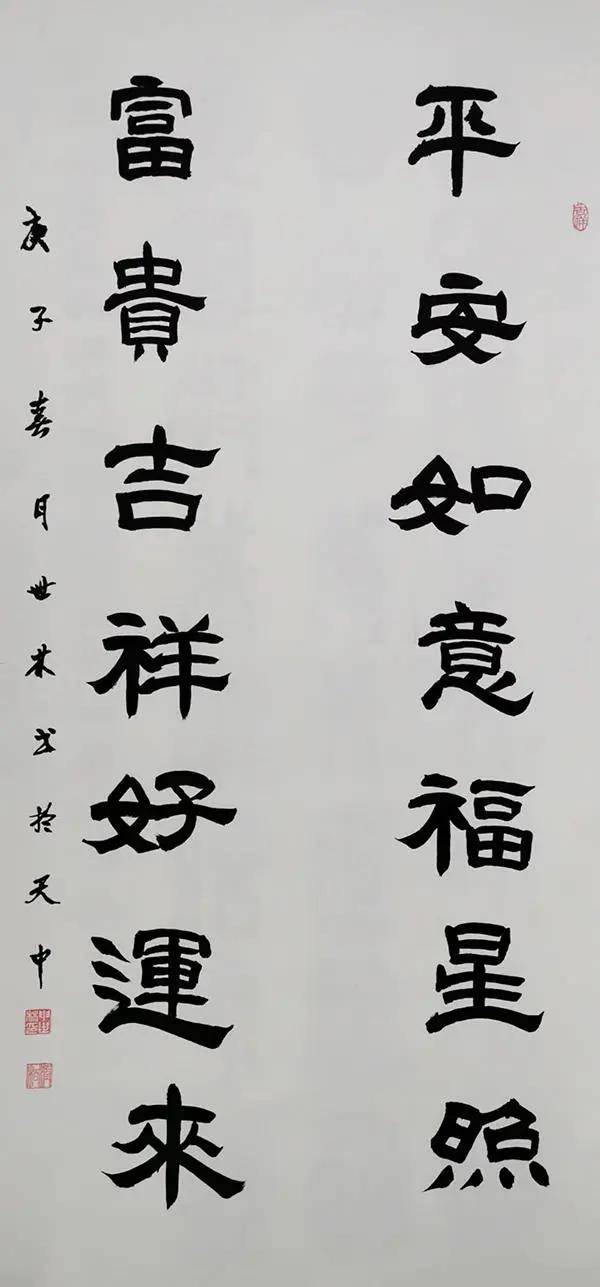 平安如意福星照
富貴吉祥好運來
庚子春月世林书於天中